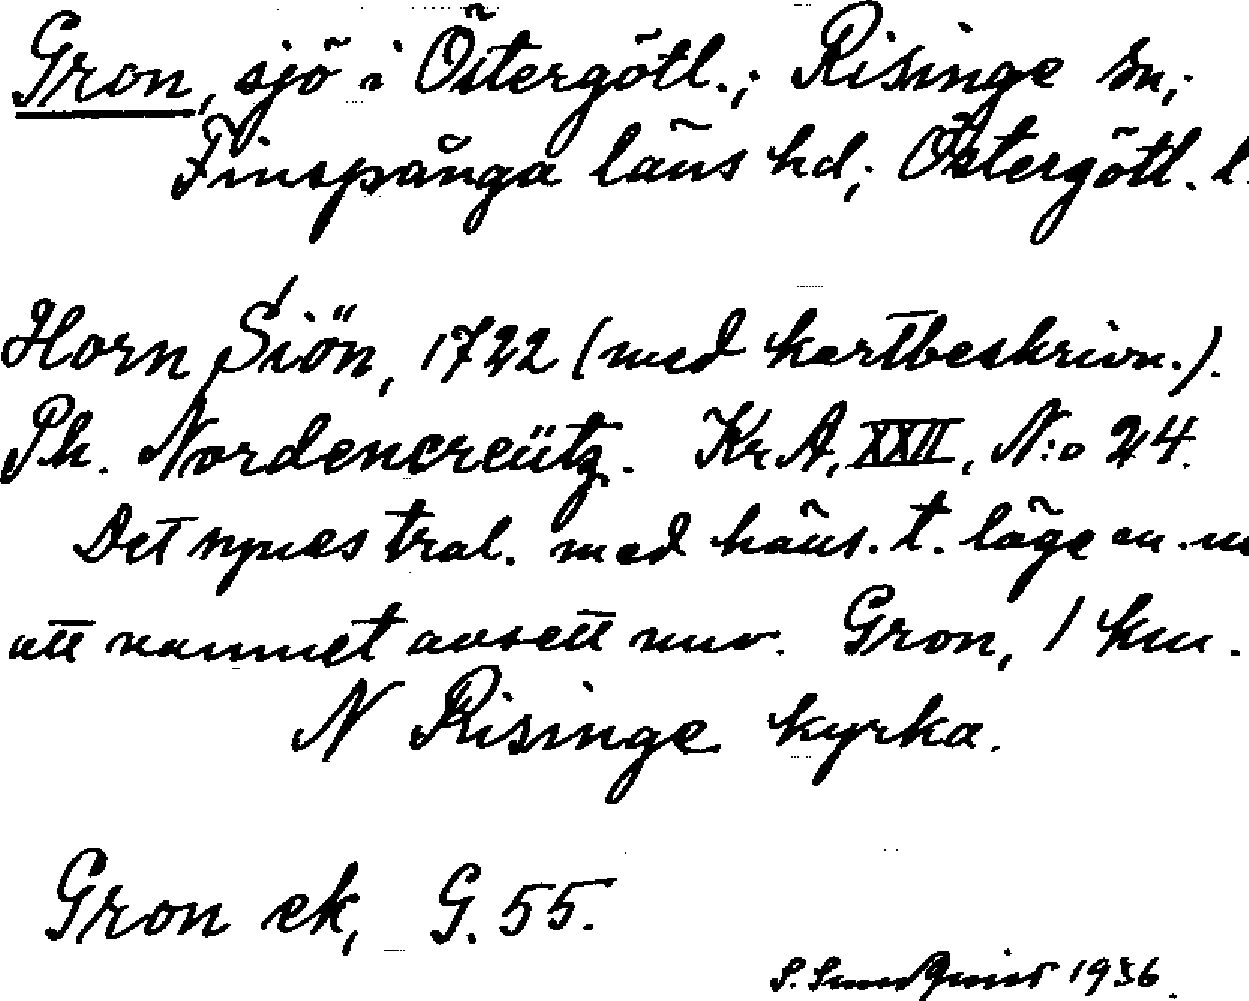 Gron, sjö i Östergötl.; Risinge sn,
Finspånga läns hd; Östergötl. l.
Horn Siön, 1722 (med kartbeskrivn.).
Ph. Nordencreütz. Kr.A, XXII, N:o 24.
Det synes tral. med häns. t. läge
att namnet avsett nuv. Gron, 1 km.
N Risinge kyrka.
Gron ek, G. 55.
S. Sundquist 1936.